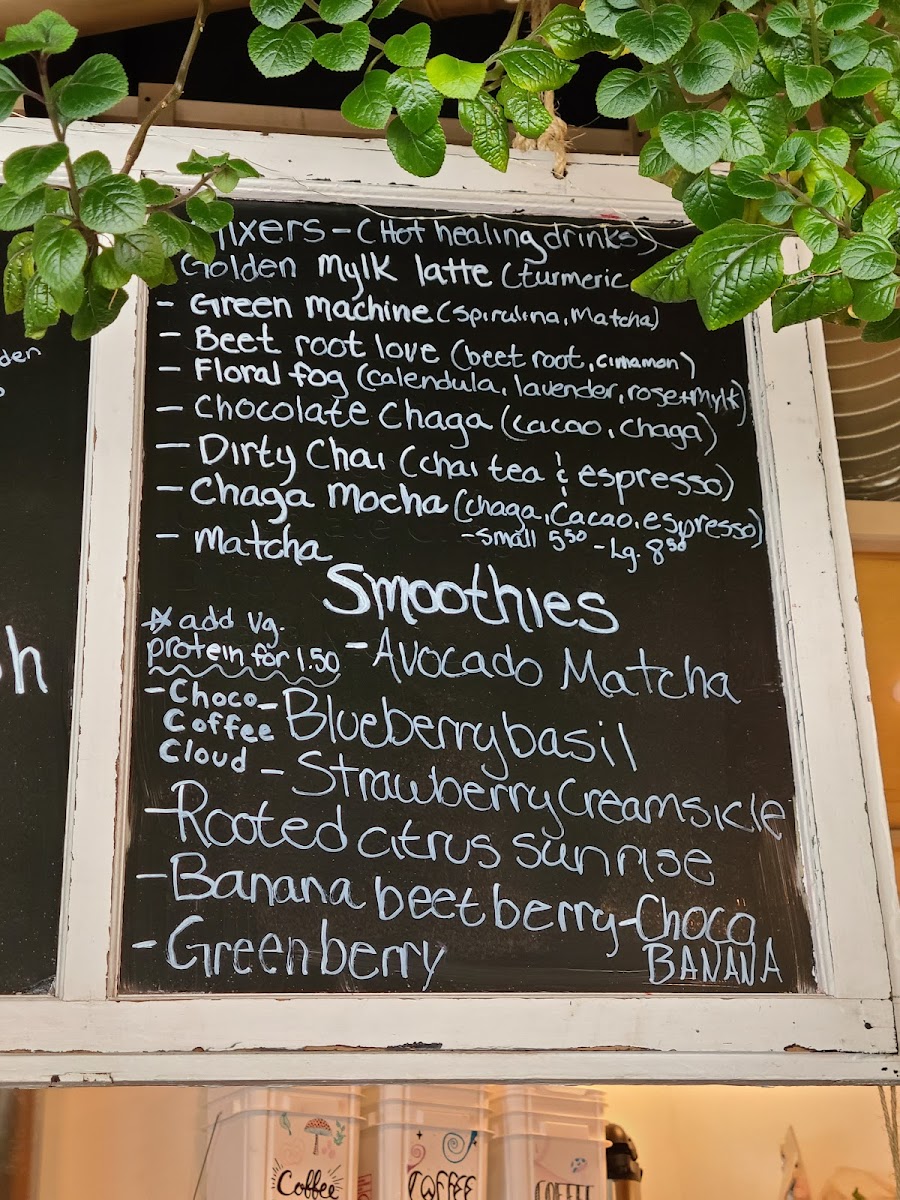 ixers - (Hot healing drinks)
Golden Mylk latte (turmeric
- Green Machine (spirulina, Matcha)
- Beet root love (beet root, cinnamon)
- Floral fog (calendula, lavender, rose + mylk)
- Chocolate Chaga (cacao, chaga)
- Dirty Chai (chai tea & espresso)
- Chaga Mocha (chaga, Cacao, espresso)
- Matcha
- Small 5⁵⁰ - Lg. 8⁵⁰
Smoothies
* add vg.
protein for 1.50
- Avocado Matcha
- Choco
Coffee
Cloud
- Blueberry basil
- Strawberry Creamsicle
- Rooted citrus sunrise
- Banana beet berry
- Choco
BANANA
- Greenberry
den
h
Coffee
COFFEE
COFFEE